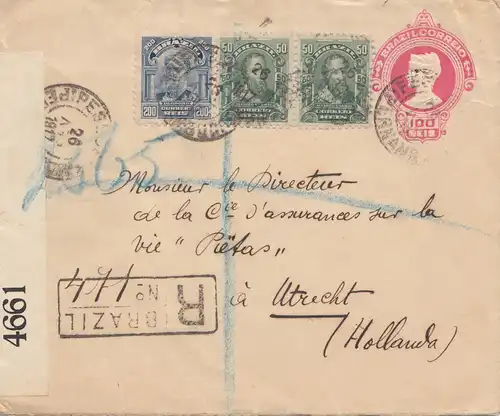 200 BRAZIL 200
CORREIO
200 REIS 200
50 BRAZIL 50
CORREIO
REIS
50 BRAZIL 50
CORREIO
REIS
BRAZIL CORREIO
100
REIS
26
Monsieur le Directeur
de la Cie d'assurances sur la
vie "Piëtas"
à Utrecht
(Hollanda)
R
BRAZIL
No 471
4661